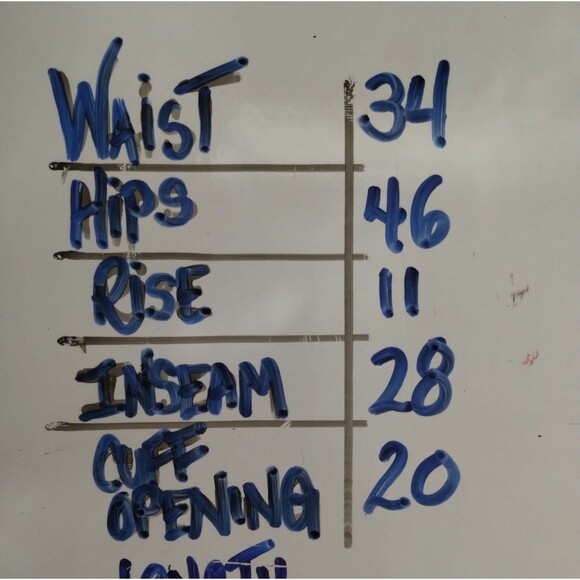 WAiST 34
HiPS 46
RiSE 11
INSEAM 28
CUFF
OPENING 20